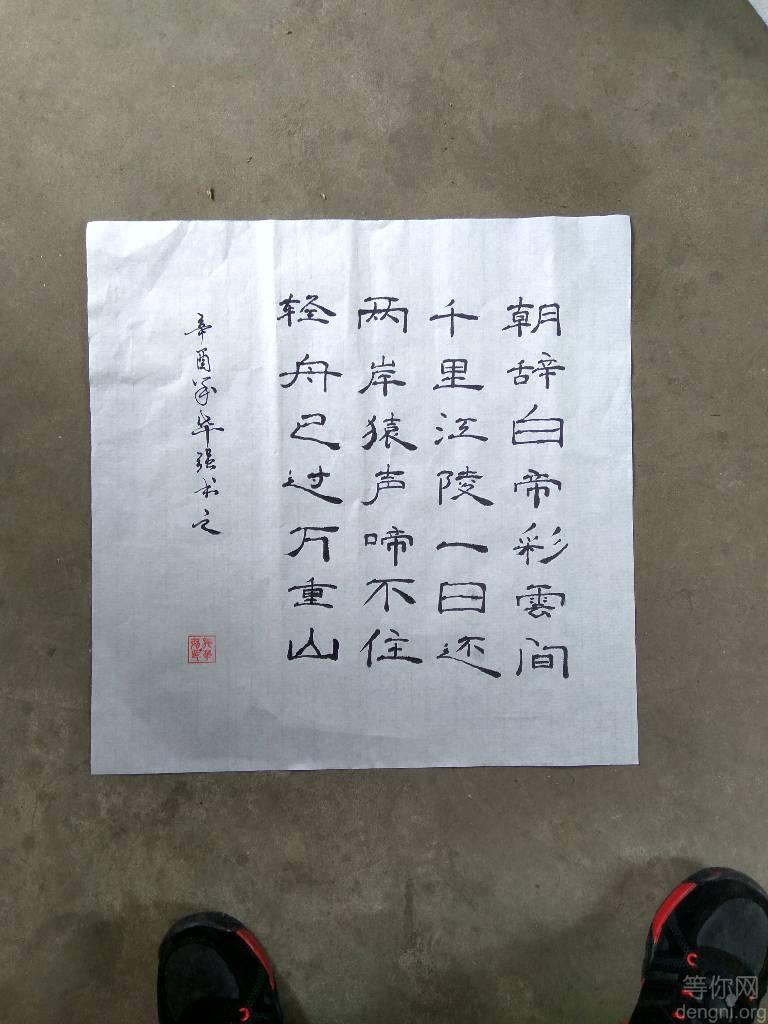 朝辞白帝彩雲间
千里江陵一日还
两岸猿声啼不住
轻舟已过万重山
辛酉年华强书之
等你网
dengni.org